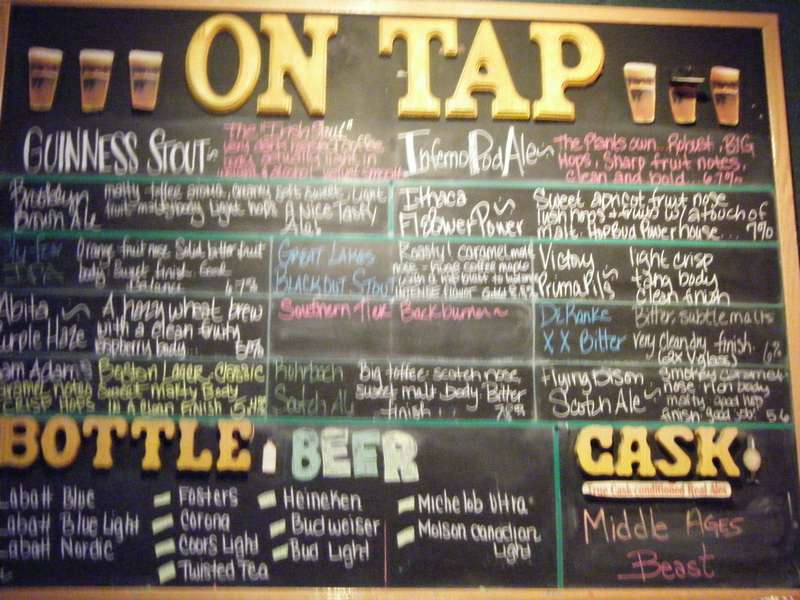 ON TAP
GUINNESS STOUT
The "Irish Stout"
very dark
InfernoPodAle
The Plants own. Robust, BIG
Hops, Sharp fruit notes,
clean and bold... 6.7%
Brooklyn
Brown Ale
malty toffee aroma, creamy soft sweet, light
fruit malty body light hops A Nice Tasty
Ale!
Ithaca
Flower Power
Sweet apricot fruit nose
lush hops + fruits w/ a touch of
malt. Hop Bud Powerhouse... 7%
IPA
Orange fruit nose Solid bitter fruit
body Sweet finish Good
Balance 6.7%
GREAT LAKES
BLACKOUT STOUT
Roasty! caramel malt
nose - huge coffee maple
intense flavor
Victory
PrimaPils
light crisp
tang body
clean finish
Abita
Purple Haze
A hazy wheat brew
with a clean fruity
raspberry body
Southern Tier Backburner
De Ranke
XX Bitter
Bitter, subtle malts
very clean dry finish
(2x Vglass) 6%
Sam Adams
Boston Lager, Classic
caramel notes Sweet Malty Body
CRISP HOPS in a clean FINISH
Rohrbach
Scotch Ale
Big toffee-scotch nose
sweet malt body Bitter
finish
Flying Bison
Scotch Ale
Smokey caramel
nose rich body
malty good hop
finish good job! 5.6
BOTTLE BEER
Labatt Blue
Labatt Blue Light
Labatt Nordic
Fosters
Corona
Coors Light
Twisted Tea
Heineken
Budweiser
Bud Light
Michelob Ultra
Molson Canadian
Light
CASK
True Cask Conditioned Real Ales
Middle Ages
Beast